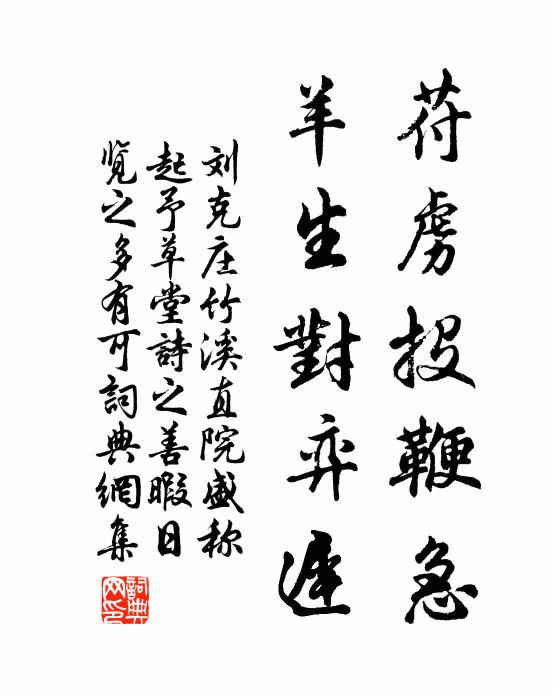 苻虜投鞭急
羊生對弈遲
刘克庄竹溪直院盛称
起予草堂詩之善暇日
览之多有可詞典網集
詞典
网印